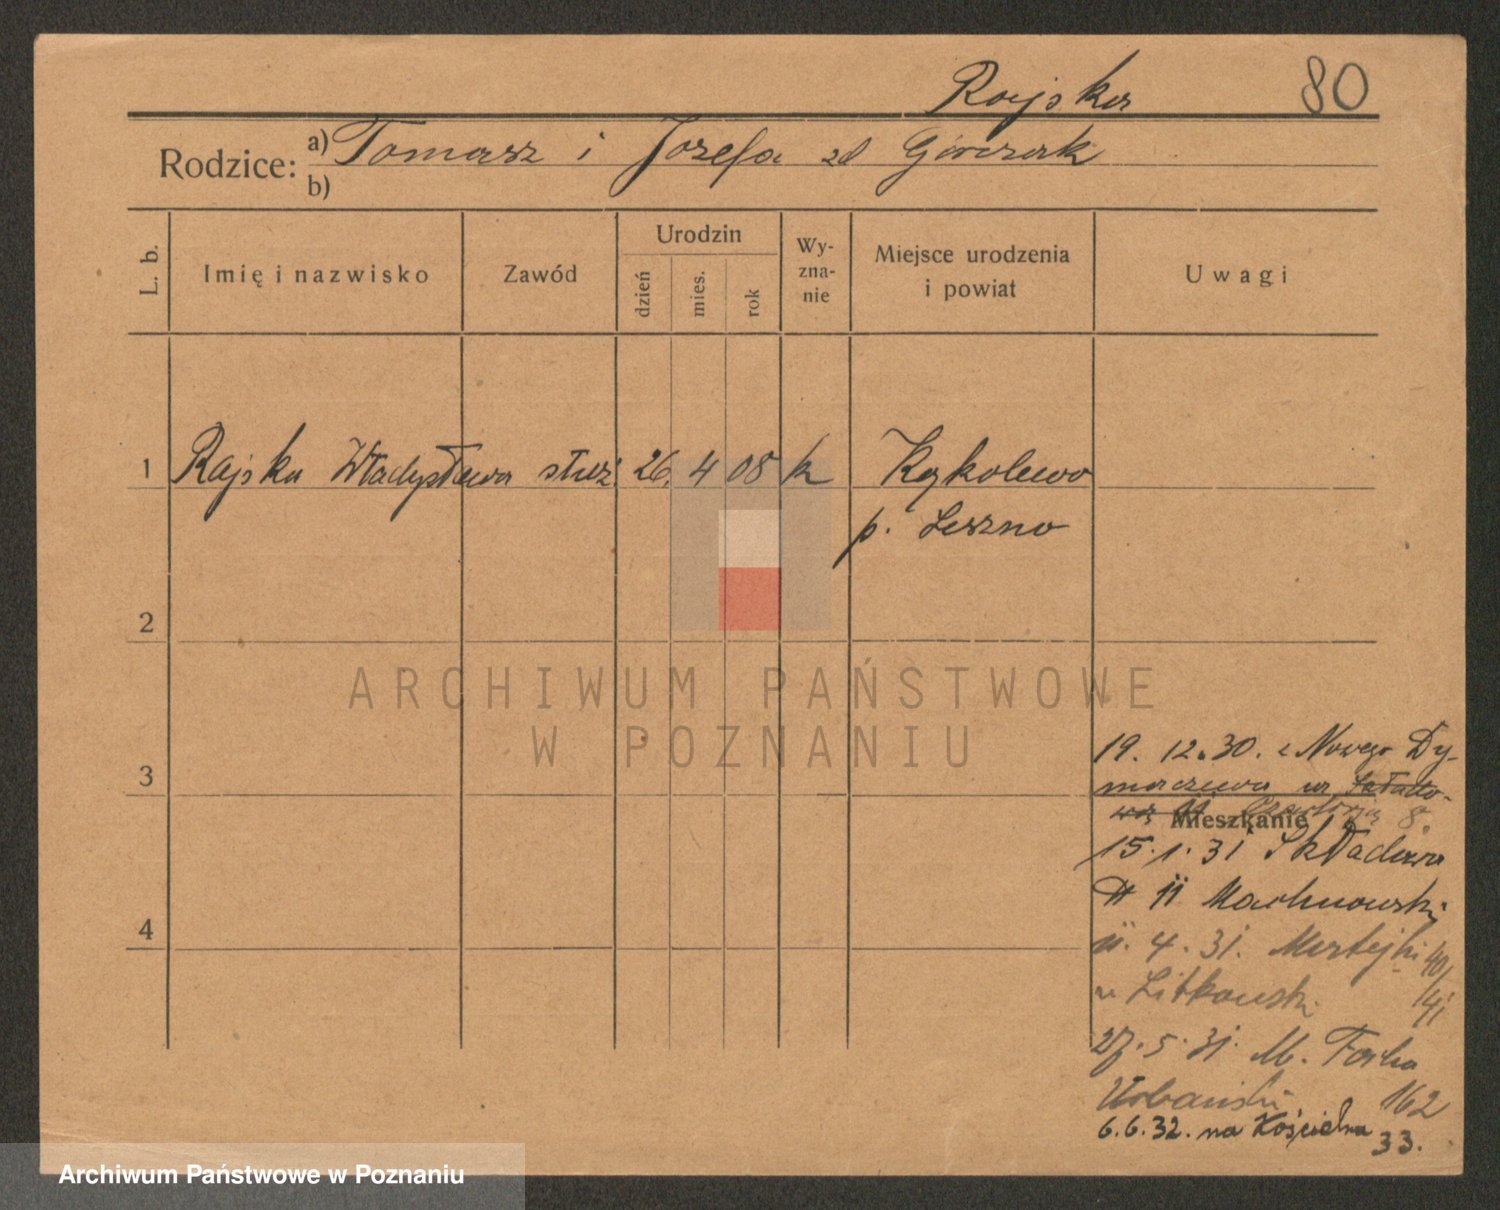 Rajska 80
Rodzice: a) Tomasz i Józefa zd Górczak
b)
L. b. Imię i nazwisko Zawód Urodzin dzień mies. rok Wy-zna-nie Miejsce urodzenia i powiat Uwagi
1 Rajska Władysława służ. 26. 4 08 k Kąkolewo
p. Leszno
2
ARCHIWUM PAŃSTWOWE
W POZNANIU
3
19. 12.30. z Nowego Dy-
maczewa
8
Mieszkanie
15.1.31 Składowa
11 Machnowski
11.4.31. Matejki 40/41
u Litkowski
27.5.31. M. Focha
Urbański 162
6.6.32. na Kościelna 33.
4
Archiwum Państwowe w Poznaniu